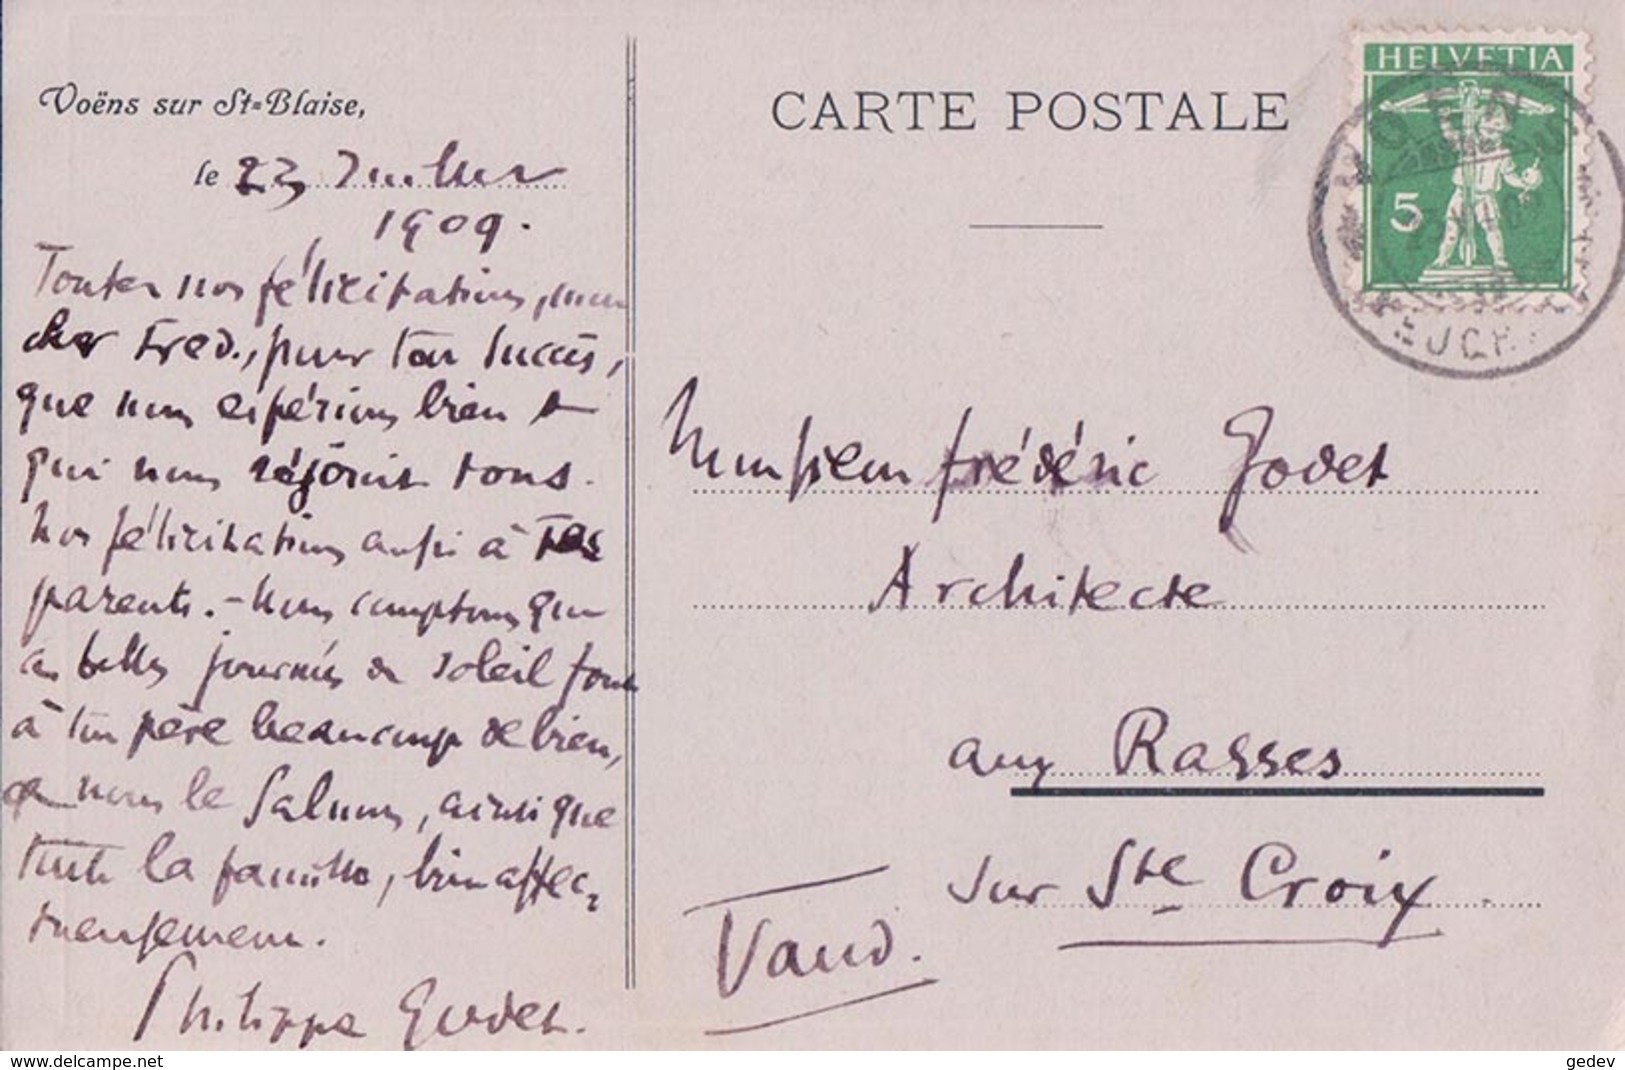 Voëns sur St-Blaise,
le 23 Juillet
1909.
Toutes nos félicitations, mon
cher Fred., pour ton succès,
que nous espérions bien et
qui nous réjouit tous.
Nos félicitations aussi à tes
parents. – Nous comptons que
ces belles journées de soleil font
à ton père beaucoup de bien,
et nous le saluons, ainsi que
toute la famille, bien affec-
tueusement.
Philippe Godet.
CARTE POSTALE
HELVETIA
5
VOENS
Monsieur Frédéric Godet
Architecte
aux Rasses
sur Ste Croix
Vaud.
www.delcampe.net
gedev